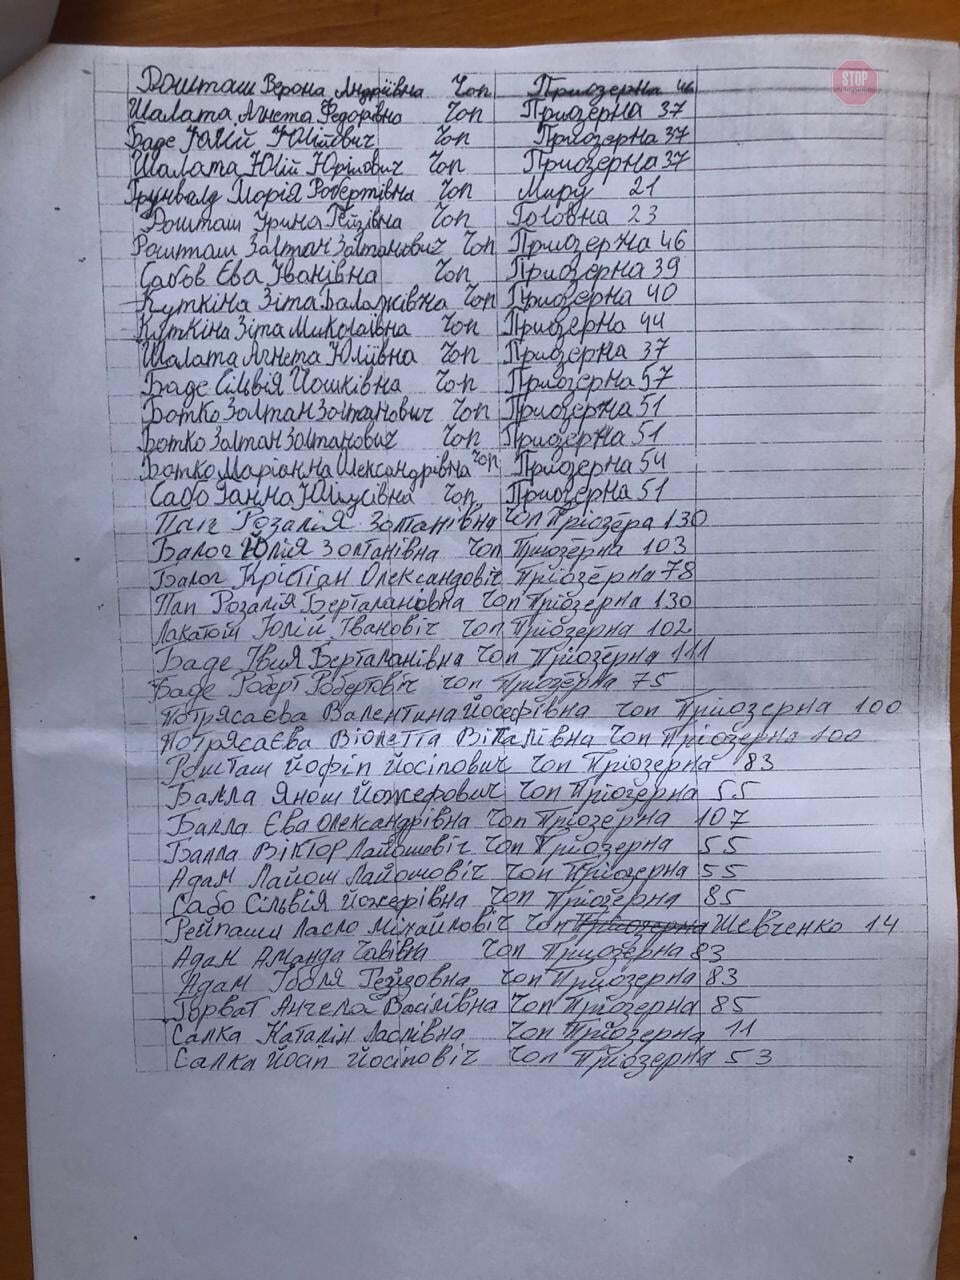 STOP
Рошташ Верона Андріївна Чоп Приозерна 46
Шалата Агнета Федорівна Чоп Приозерна 37
Баде Юлій Юлійович Чоп Приозерна 37
Шалата Юлій Юрійович Чоп Приозерна 37
Грунвалд Морія Робертівна Чоп Миру 21
Рошташ Ірина Гейзівна Чоп Головна 23
Рошташ Залтан Залтанович Чоп Приозерна 46
Сабов Єва Іванівна Чоп Приозерна 39
Куткіна Зіта Балажівна Чоп Приозерна 40
Куткіна Зіта Миколаївна Чоп Приозерна 44
Шалата Агнета Юліївна Чоп Приозерна 37
Баде Сільвія Йошківна Чоп Приозерна 57
Ботко Золтан Золтанович Чоп Приозерна 51
Ботко Золтан Золтанович Чоп Приозерна 51
Ботко Маріанна Олександрівна Чоп Приозерна 54
Сабо Ганна Юліусівна Чоп Приозерна 51
Пап Розалія Золтанівна Чоп Пріозера 130
Балог Юлія Золтанівна Чоп Приозерна 103
Балог Крістіан Олександовіч Пріозерна 78
Пап Розалія Берталановна Чоп Пріозерна 130
Лакатош Юлій Івановіч Чоп Пріозерна 102
Баде Івія Берталанівна Чоп Пріозерна 111
Баде Роберт Робертовіч Чоп Пріозерна 75
Потрясаєва Валентина Йосефівна Чоп Пріозерна 100
Потрясаєва Віолетта Віталівна Чоп Пріозерна 100
Рошташ Йофіп Йосіпович Чоп Пріозерна 83
Балла Янош Йожефович Чоп Пріозерна 55
Балла Єва Олександрівна Чоп Пріозерна 107
Балла Віктор Лайошевіч Чоп Пріозерна 55
Адам Лайош Лайошовіч Чоп Пріозерна 55
Сабо Сільвія Йожефівна Чоп Пріозерна 85
Рейпаши Ласло Міхайловіч Чоп Приозерна Шевченко 14
Адам Аманда Чавівна Чоп Пріозерна 83
Адам Іболя Гейзовна Чоп Пріозерна 83
Горват Анчела Василівна Чоп Пріозерна 85
Салка Каталін Ласлівна Чоп Пріозерна 11
Салка Йосіп Йосіповіч Чоп Пріозерна 53